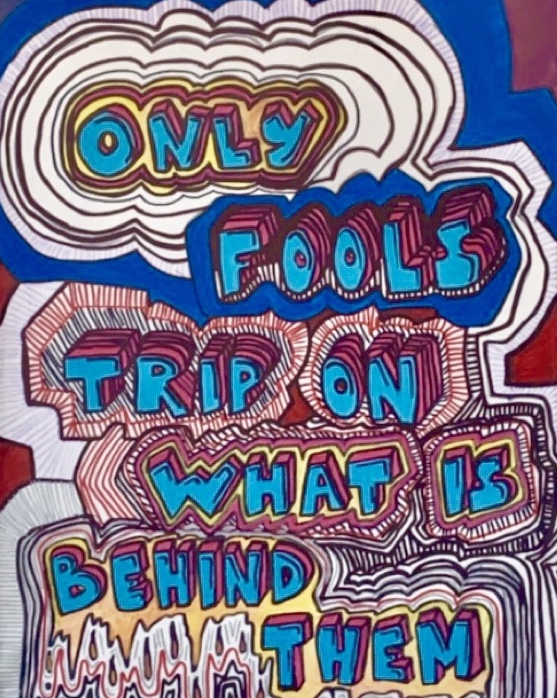 ONLY
FOOLS
TRIP ON
WHAT IS
BEHIND
THEM